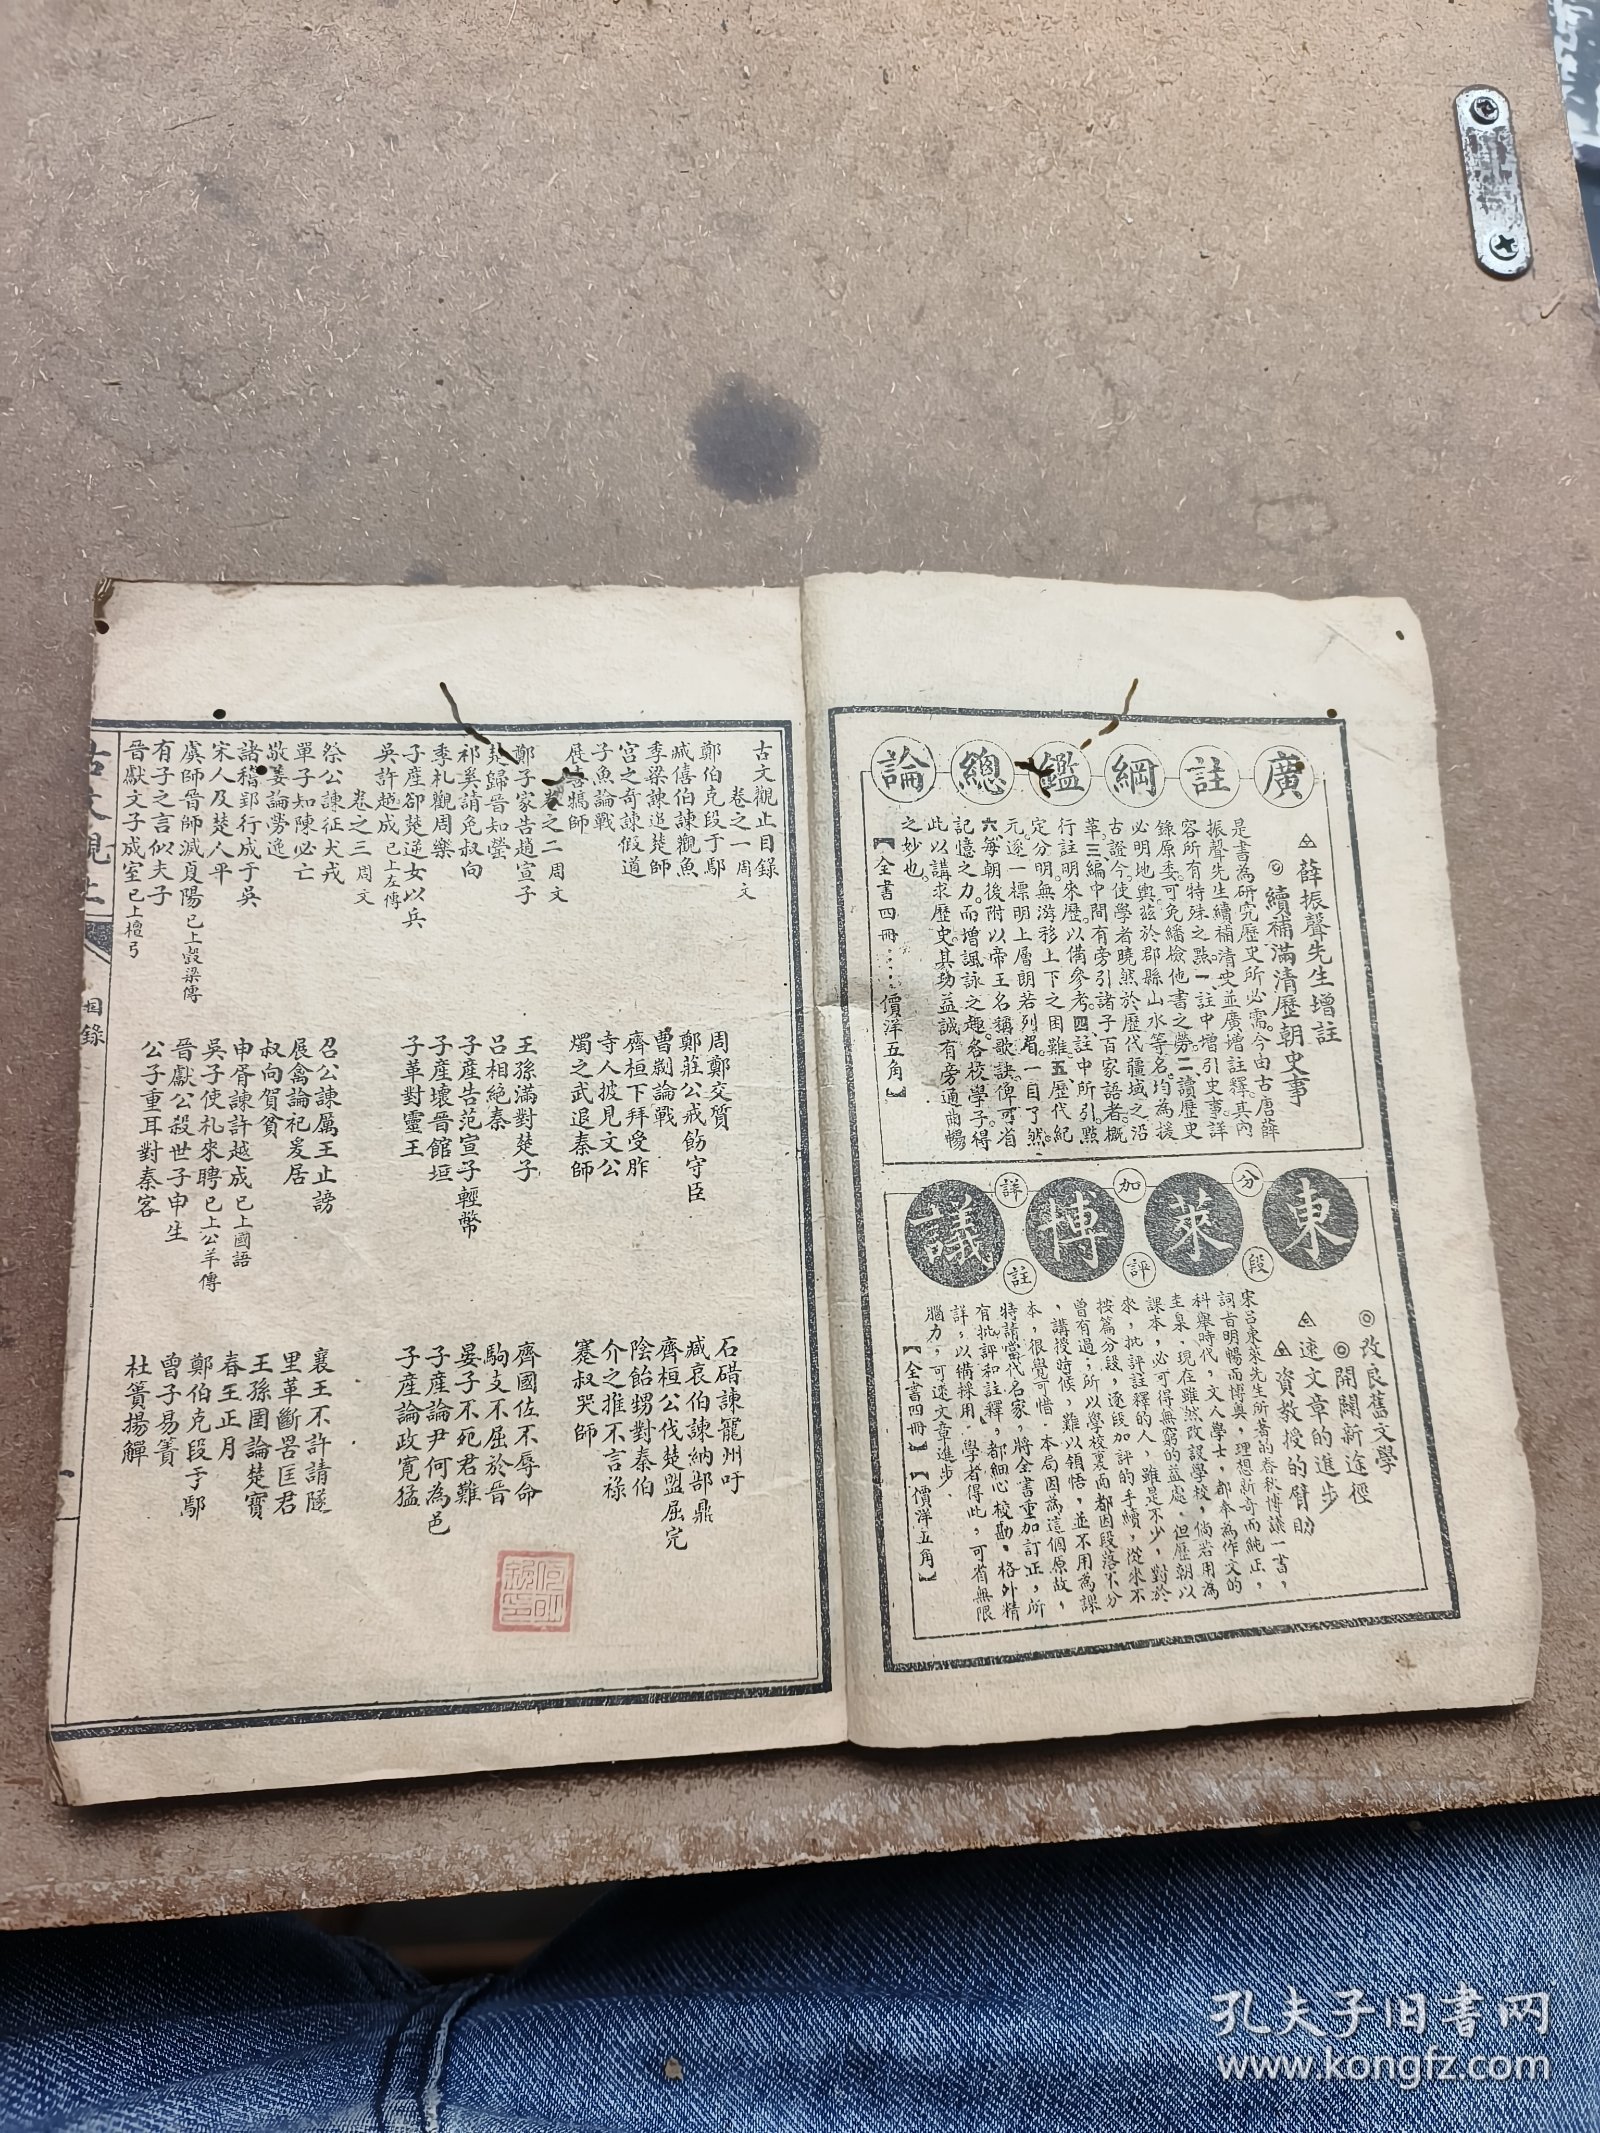 廣註綱鑑總論
薛振聲先生增註
◎續補滿清歷朝史事
是書為研究歷史所必需。今由古唐薛
振聲先生續補清史並廣增註釋。其內
容所有特殊之點。一、註中增引史事。詳
錄原委。可免繙檢他書之勞。二、讀歷史
必明地輿。茲於郡縣山水等名。均為援
古證今。使學者曉然於歷代疆域之沿
革。三、編中間有旁引諸子百家語者。概
行註明來歷。以備參考。四、註中所引。點
定分明。無游移上下之困難。五、歷代紀
元。逐一標明上層。朗若列眉。一目了然。
六、每朝後附以帝王名稱歌訣。俾可省
記憶之力。而增諷詠之趣。各校學子。得
此以講求歷史。其功益誠有旁通曲暢
之妙也。
【全書四冊……價洋五角】
東萊博議
分段加評詳註
◎改良舊文學
◎開闢新途徑
速文章的進步
資教授的臂助
宋呂東萊先生所著的春秋博議一書，
詞旨明暢而博奧，理想新奇而純正，
科舉時代，文人學士，都奉為作文的
圭臬，現在雖然改設學校，倘若用為
課本，必可得無窮的益處．但歷朝以
來，批評註釋的人，雖是不少，對於
按篇分段，逐段加評的手續，從來不
曾有過；所以學校裏面都因段落不分
，講授時候，難以領悟，並不用為課
本，很覺可惜．本局因為這個原故，
特請當代名家，將全書重加訂正，所
有批評和註釋，都細心校勘，格外精
詳，以備採用．學者得此，可省無限
腦力，可速文章進步．
【全書四冊】【價洋五角】
古文觀止目錄
卷之一 周文
鄭伯克段于鄢 周鄭交質 石碏諫寵州吁
臧僖伯諫觀魚 鄭莊公戒飭守臣 臧哀伯諫納郜鼎
季梁諫追楚師 曹劌論戰 齊桓公伐楚盟屈完
宮之奇諫假道 齊桓下拜受胙 陰飴甥對秦伯
子魚論戰 寺人披見文公 介之推不言祿
展喜犒師 燭之武退秦師 蹇叔哭師
卷之二 周文
鄭子家告趙宣子 王孫滿對楚子 齊國佐不辱命
楚歸晉知罃 呂相絕秦 駒支不屈於晉
祁奚請免叔向 子產告范宣子輕幣 晏子不死君難
季札觀周樂 子產壞晉館垣 子產論尹何為邑
子產卻楚逆女以兵 子革對靈王 子產論政寬猛
吳許越成 已上左傳
卷之三 周文
祭公諫征犬戎 召公諫厲王止謗 襄王不許請隧
單子知陳必亡 展禽論祀爰居 里革斷罟匡君
敬姜論勞逸 叔向賀貧 王孫圉論楚寶
諸稽郢行成于吳 申胥諫許越成 已上國語 春王正月
宋人及楚人平 吳子使札來聘 已上公羊傳 鄭伯克段于鄢
虞師晉師滅夏陽 已上穀梁傳 晉獻公殺世子申生 曾子易簀
有子之言似夫子 公子重耳對秦客 杜蕢揚觶
晉獻文子成室 已上檀弓
古文觀止
目錄
一
孔夫子旧书网
www.kongfz.com